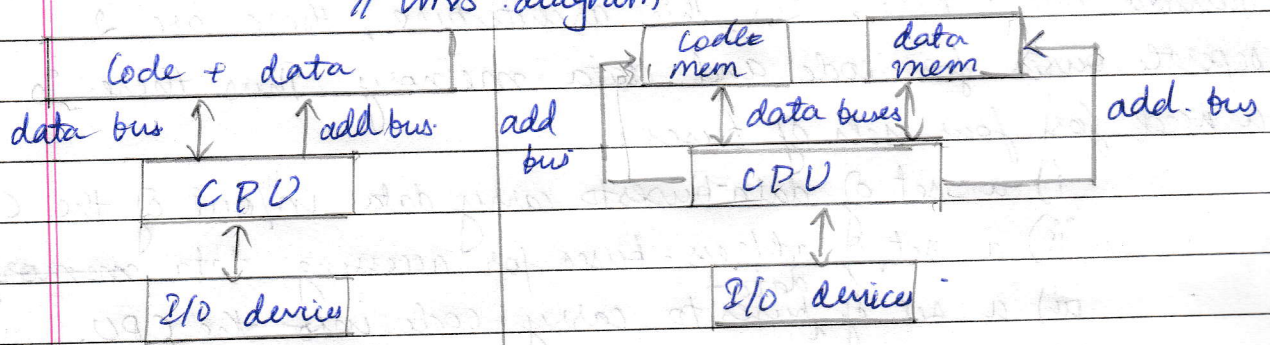 // this diagram
Code + data
data bus
add bus.
CPU
I/O devices
Code
mem
data
mem
add
bus
data buses
add. bus
CPU
I/O devices